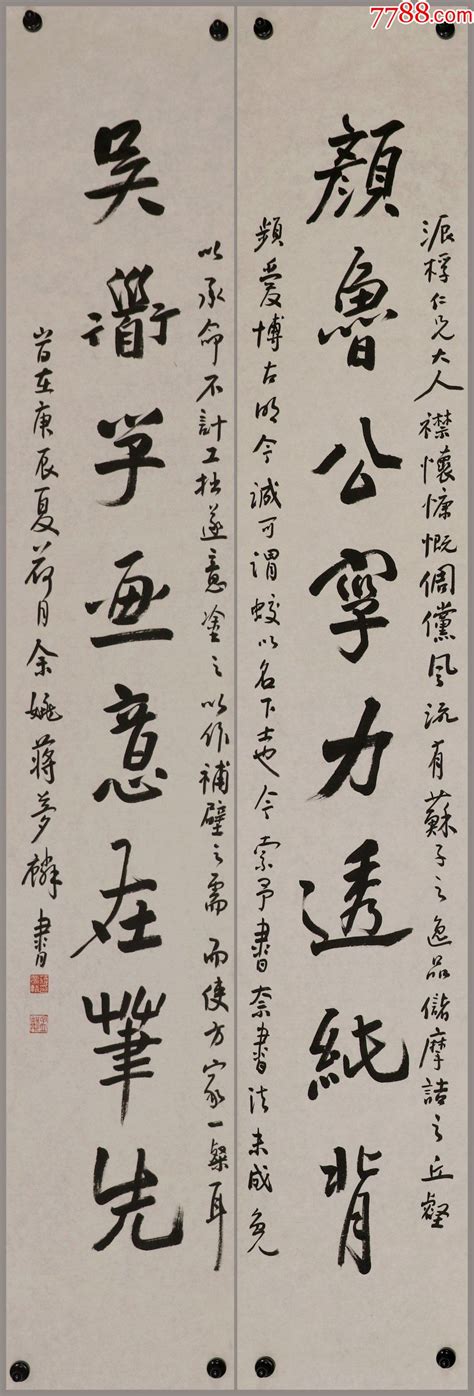 7788.com
派桴仁兄大人襟懷慷慨倜儻風流有蘇子之逸品儲摩詰之丘壑
顏魯公字力透紙背
頻愛博古明今誠可謂以名下士也今索予書奈書法未成免
以承命不計工拙遂意塗之以作補壁之需而使方家一粲耳
吳衜子畫意在筆先
旹在庚辰夏荷月余姚蔣夢麟書